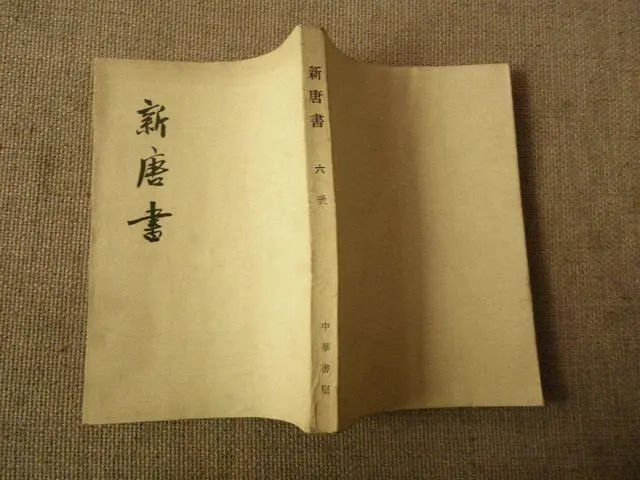 新唐書
新唐書
六
表
中華書局